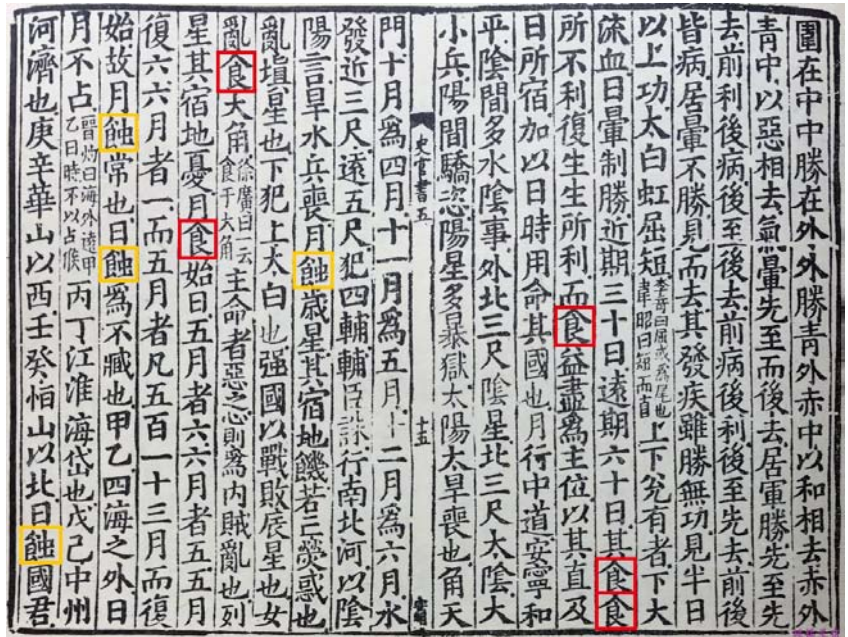 圍在中中勝在外外勝青外赤中以和相去赤外
青中以惡相去氣暈先至而後去居軍勝先至先
去前利後病後至後去前病後利後至先去前後
皆病居暈不勝見而去其發疾雖勝無功見半日
以上功太白虹屈短李奇曰屈或爲尾也韋昭曰短而直上下兌有者下大
流血日暈制勝近期三十日遠期六十日其食食
所不利復生生所利而食益盡爲主位以其直及
日所宿加以日時用命其國也月行中道安寧和
平陰間多水陰事外北三尺陰星北三尺太陰大
小兵陽間驕恣陽星多暴獄太陽大旱喪也角天
史官書五
十五
門十月爲四月十一月爲五月十二月爲六月水
發近三尺遠五尺犯四輔輔臣誅行南北河以陰
陽言旱水兵喪月蝕歲星其宿地饑若亡熒惑也
亂塡星也下犯上太白也强國以戰敗辰星也女
亂食大角徐廣曰一云食于大角主命者惡之心則爲内賊亂也列
星其宿地憂月食始日五月者六六月者五五月
復六六月者一而五月者凡五百一十三月而復
始故月蝕常也日蝕爲不臧也甲乙四海之外日
月不占晉灼曰海外遠甲乙日時不以占候丙丁江淮海岱也戊己中州
河濟也庚辛華山以西壬癸恒山以北日蝕國君